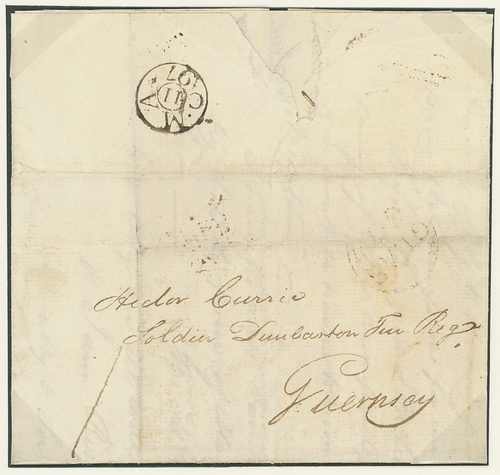 C
MA
11
97
Hector Currie
Soldier Dunbarton Fen Regt.
Guernsey
1